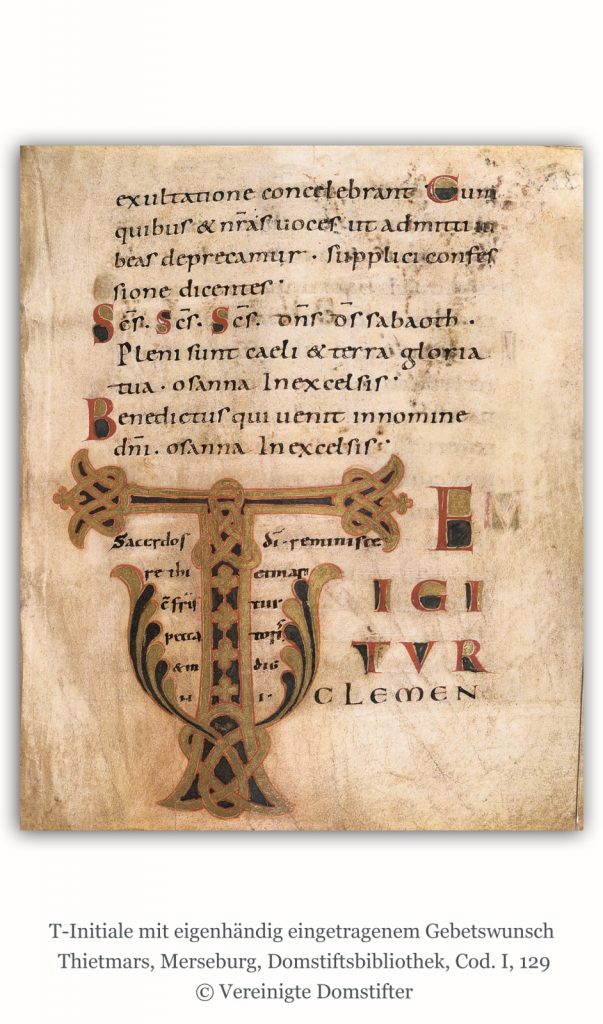 exultatione concelebrant Cum
quibus & nr̄as uoces ut admitti iu
beas deprecamur · supplici confes
sione dicentes·
Sc̄s. Sc̄s. Sc̄s. dn̄s d̄s sabaoth ·
Pleni sunt caeli & terra gloria
tua · osanna In excelsis·
Benedictus qui uenit innomine
dn̄i · osanna In excelsis·
T E
Sacerdos dī · reminisce
re thi etmari
tui
pecca toris
& in dig
n i ·
IGI
TVR
CLEMEN
T-Initiale mit eigenhändig eingetragenem Gebetswunsch
Thietmars, Merseburg, Domstiftsbibliothek, Cod. I, 129
© Vereinigte Domstifter